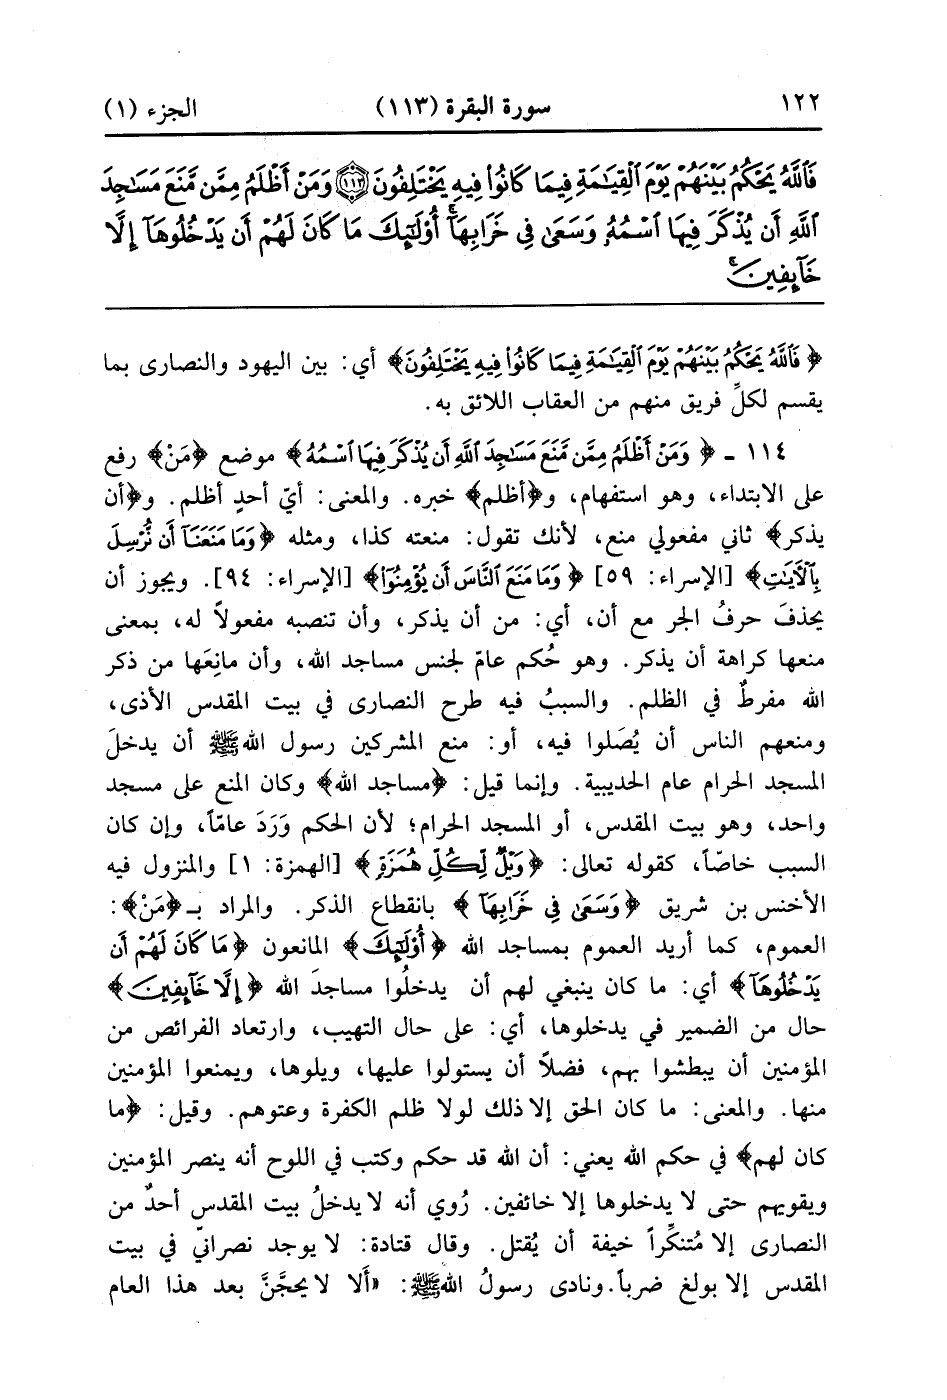 ١٢٢ سورة البقرة (١١٣) الجزء (١)
فَٱللَّهُ يَحْكُمُ بَيْنَهُمْ يَوْمَ ٱلْقِيَـٰمَةِ فِيمَا كَانُوا۟ فِيهِ يَخْتَلِفُونَ ١١٣ وَمَنْ أَظْلَمُ مِمَّن مَّنَعَ مَسَـٰجِدَ
ٱللَّهِ أَن يُذْكَرَ فِيهَا ٱسْمُهُۥ وَسَعَىٰ فِى خَرَابِهَآ ۚ أُو۟لَـٰٓئِكَ مَا كَانَ لَهُمْ أَن يَدْخُلُوهَآ إِلَّا
خَآئِفِينَ ۚ
﴿فَٱللَّهُ يَحْكُمُ بَيْنَهُمْ يَوْمَ ٱلْقِيَـٰمَةِ فِيمَا كَانُوا۟ فِيهِ يَخْتَلِفُونَ﴾ أي: بين اليهود والنصارى بما
يقسم لكلِّ فريق منهم من العقاب اللائق به.
١١٤ - ﴿وَمَنْ أَظْلَمُ مِمَّن مَّنَعَ مَسَـٰجِدَ ٱللَّهِ أَن يُذْكَرَ فِيهَا ٱسْمُهُۥ﴾ موضع ﴿مَنْ﴾ رفع
على الابتداء، وهو استفهام، و﴿أظلم﴾ خبره. والمعنى: أيّ أحدٍ أظلم. و﴿أن
يذكر﴾ ثاني مفعولي منع، لأنك تقول: منعته كذا، ومثله ﴿وَمَا مَنَعَنَآ أَن نُّرْسِلَ
بِٱلْآيَـٰتِ﴾ [الإسراء: ٥٩] ﴿وَمَا مَنَعَ ٱلنَّاسَ أَن يُؤْمِنُوٓا۟﴾ [الإسراء: ٩٤]. ويجوز أن
يحذفَ حرفُ الجر مع أن، أي: من أن يذكر، وأن تنصبه مفعولاً له، بمعنى
منعها كراهة أن يذكر. وهو حُكم عامّ لجنس مساجد الله، وأن مانِعَها من ذكر
الله مفرطٌ في الظلم. والسببُ فيه طرح النصارى في بيت المقدس الأذى،
ومنعهم الناس أن يُصَلوا فيه، أو: منع المشركين رسول الله ﷺ أن يدخلَ
المسجد الحرام عام الحديبية. وإنما قيل: ﴿مساجد الله﴾ وكان المنع على مسجد
واحد، وهو بيت المقدس، أو المسجد الحرام؛ لأن الحكم وَرَدَ عامّاً، وإن كان
السبب خاصّاً، كقوله تعالى: ﴿وَيْلٌ لِّكُلِّ هُمَزَةٍ﴾ [الهمزة: ١] والمنزول فيه
الأخنس بن شريق ﴿وَسَعَىٰ فِى خَرَابِهَآ﴾ بانقطاع الذكر. والمراد بـ﴿مَنْ﴾:
العموم، كما أريد العموم بمساجد الله ﴿أُو۟لَـٰٓئِكَ﴾ المانعون ﴿مَا كَانَ لَهُمْ أَن
يَدْخُلُوهَآ﴾ أي: ما كان ينبغي لهم أن يدخلُوا مساجدَ الله ﴿إِلَّا خَآئِفِينَ﴾
حال من الضمير في يدخلوها، أي: على حال التهيب، وارتعاد الفرائص من
المؤمنين أن يبطشوا بهم، فضلاً أن يستولوا عليها، ويلوها، ويمنعوا المؤمنين
منها. والمعنى: ما كان الحق إلا ذلك لولا ظلم الكفرة وعتوهم. وقيل: ﴿ما
كان لهم﴾ في حكم الله يعني: أن الله قد حكم وكتب في اللوح أنه ينصر المؤمنين
ويقويهم حتى لا يدخلوها إلا خائفين. رُوي أنه لا يدخلُ بيت المقدس أحدٌ من
النصارى إلا مُتنكِّراً خيفة أن يُقتل. وقال قتادة: لا يوجد نصرانيّ في بيت
المقدس إلا بولغ ضرباً. ونادى رسولُ الله ﷺ: «أَلا لا يحجَّنَّ بعد هذا العام